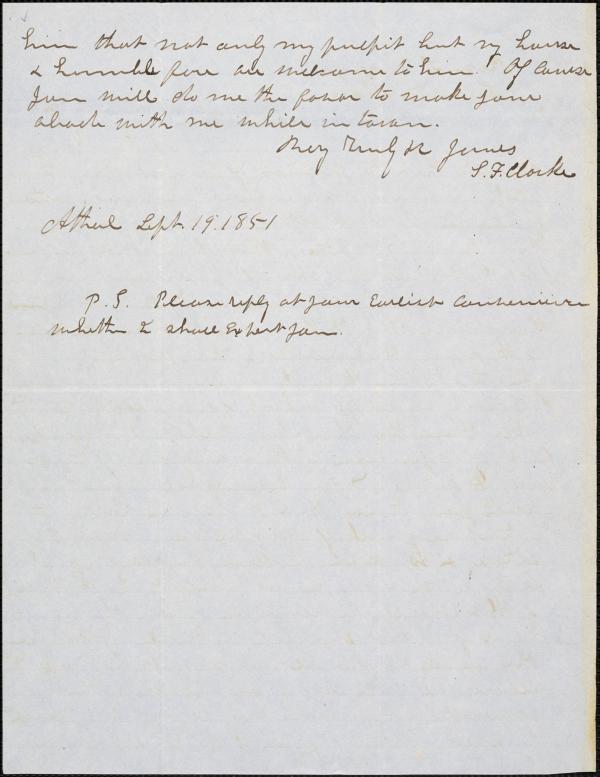 him that not only my pulpit but my house
& humble fare are welcome to him. Of course
you will do me the favor to make your
abode with me while in town.
Very Truly & Yours
S. F. Clarke
Athol Sept. 19. 1851
P. S. Please reply at your Earliest Convenience
whether I shall Expect you.